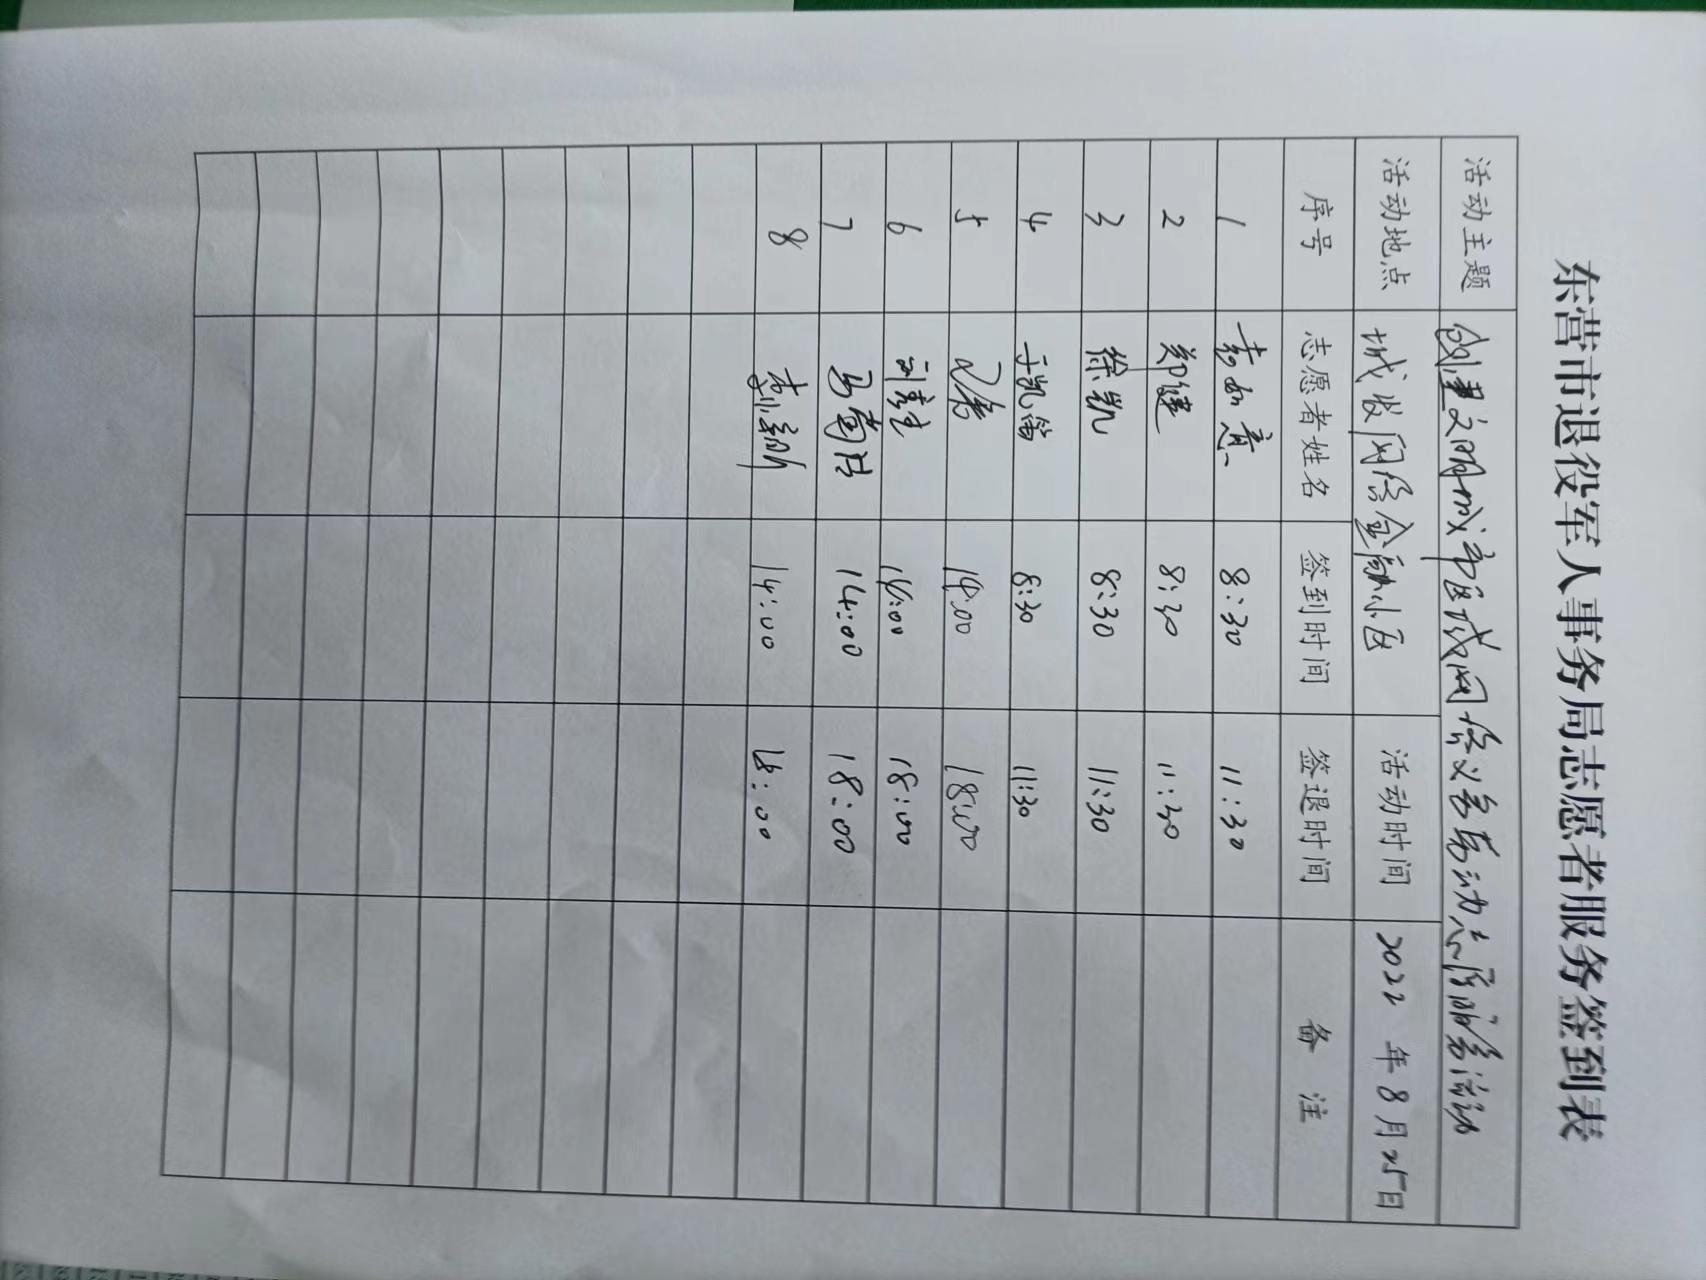 东营市退役军人事务局志愿者服务签到表
活动主题 创建文明城市区域网格义务劳动志愿服务活动
活动地点 城发网格金融小区 活动时间 2022 年 8 月 25 日
序号 志愿者姓名 签到时间 签退时间 备 注
1 如意 8:30 11:30
2 郑健 8:30 11:30
3 徐凯 8:30 11:30
4 于凯笛 8:30 11:30
5 14:00 18:00
6 14:00 18:00
7 14:00 18:00
8 14:00 18:00